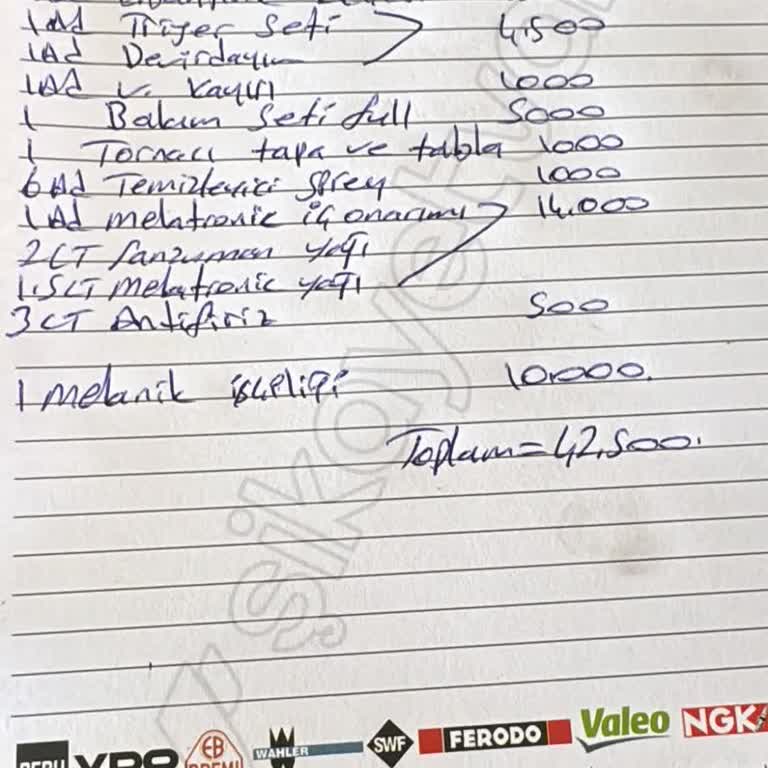 1 Ad Triger Seti 4.500
1 Ad Devirdayım
1 Ad V. Kayışı 1000
1 Bakım Seti full 5000
1 Tornacı tapa ve tabla 1000
6 Ad Temizleyici Sprey 1000
1 Ad mekatronic iç onarımı 14.000
2 CT Şanzuman yağı
1.5 CT mekatronic yağı
3 CT Antifiriz 500
1 mekanik işçeliği 10.000.
Toplam = 42.500.
şikayetvar
BERU
EB
BREMI
WAHLER
SWF
FERODO
Valeo
NGK